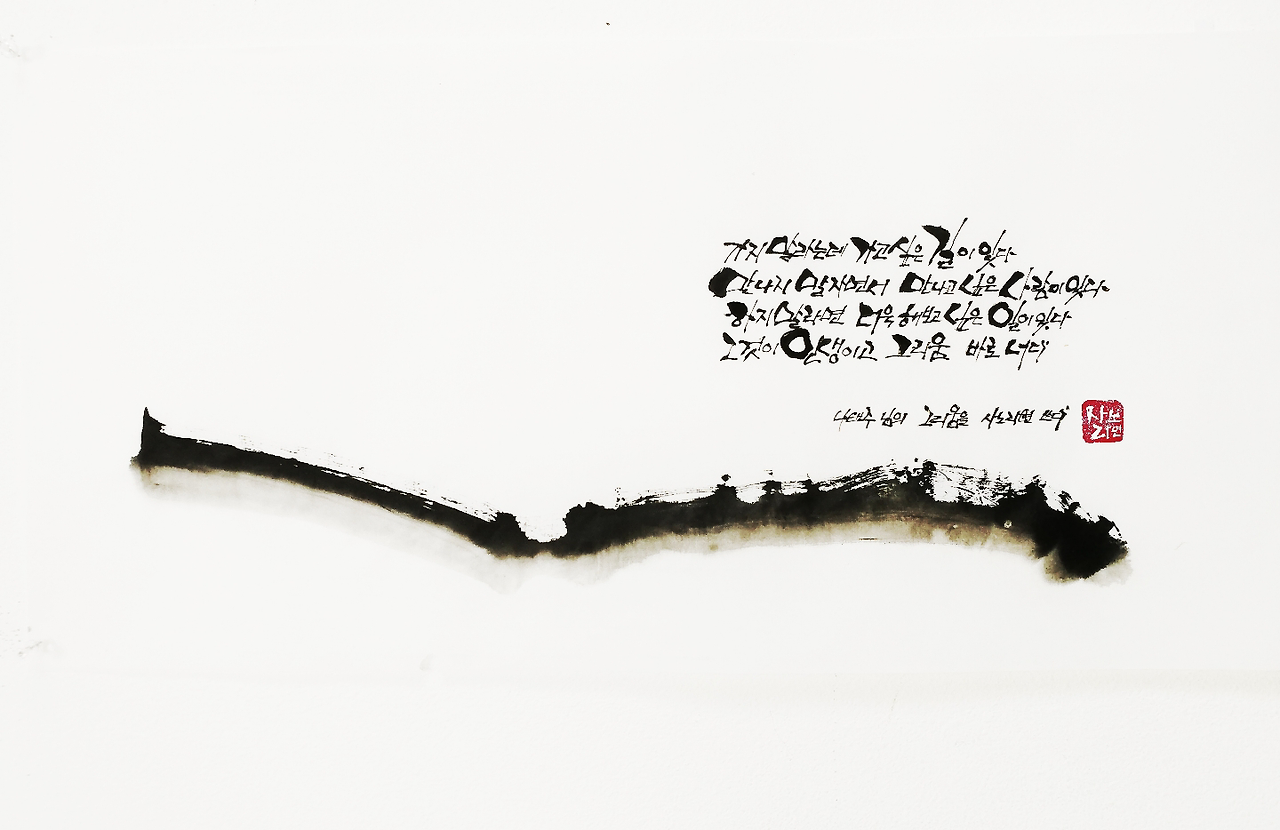 가지 말라는데 가고 싶은 길이 있다
만나지 말자면서 만나고 싶은 사람이 있다
하지 말라면 더욱 해보고 싶은 일이 있다
그것이 인생이고 그리움 바로 너다
나태주 님의 그리움을 사노라면 쓰다